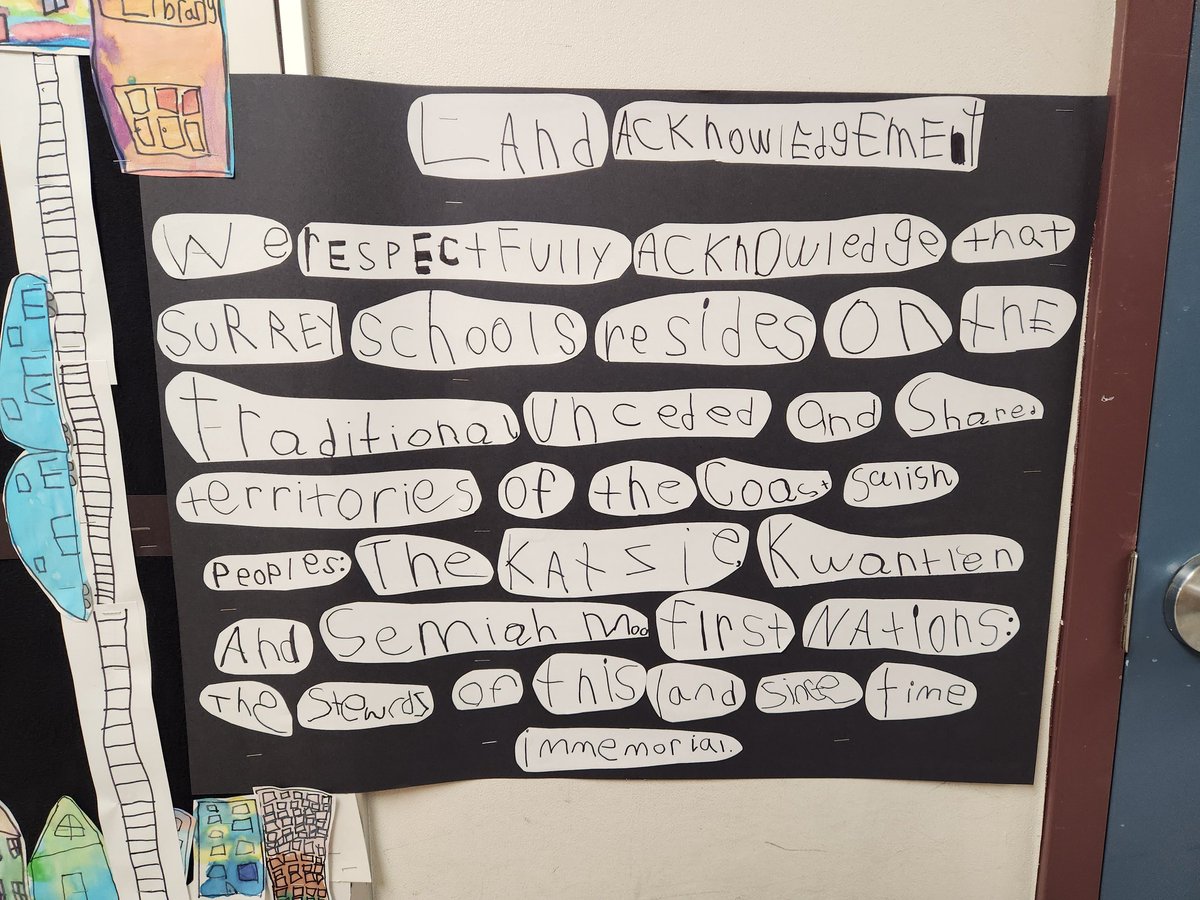 Library
LAnd ACKnowlEdgEmEnt
We rESPECtFUlly ACKnOwledge that
SURREY schools resides On thE
traditional unceded and Shared
territories of the Coast salish
Peoples: The KAtzie, Kwantlen
And Semiah moo first NAtions:
The Stewrds of this land since time
immemorial.